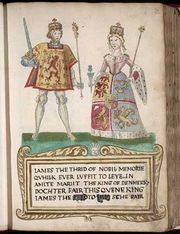 IAMES THE THRID OF NOBIL MEMORIE
QVHILK EVER LVFFIT TO LEVE IN
AMITE MARIT THE KING OF DENMERS
DOCHTER FAIR THIS QVENE KING
IAMES THE TO SCHE BAIR